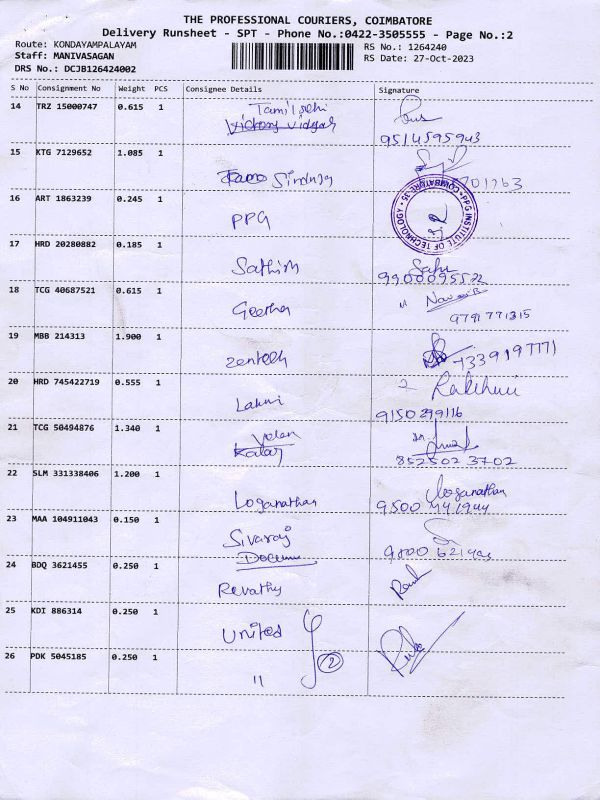 THE PROFESSIONAL COURIERS, COIMBATORE
Delivery Runsheet - SPT - Phone No.:0422-3505555 - Page No.:2
Route: KONDAYAMPALAYAM
RS No.: 1264240
Staff: MANIVASAGAN
RS Date: 27-Oct-2023
DRS No.: DCJB126424002
S No Consignment No Weight PCS Consignee Details Signature
14 TRZ 15000747 0.615 1
Tamilselvi
9514595943
15 KTG 7129652 1.085 1
Sinduja
16 ART 1863239 0.245 1
PPG
PPG INSTITUTE OF TECHNOLOGY * COIMBATORE-35
17 HRD 20280882 0.185 1
Sathish
9900095572
18 TCG 40687521 0.615 1
Geetha
9791771315
19 MBB 214313 1.900 1
Zentech
7339197771
20 HRD 745422719 0.555 1
Lakmi
9150299116
21 TCG 50494876 1.340 1
8525023702
22 SLM 331338406 1.200 1
Loganathan loganathan
9500 741944
23 MAA 104911043 0.150 1
Sivaraj
24 BDQ 3621455 0.250 1
Revathy
25 KDI 886314 0.250 1
United
26 PDK 5045185 0.250 1
" 2